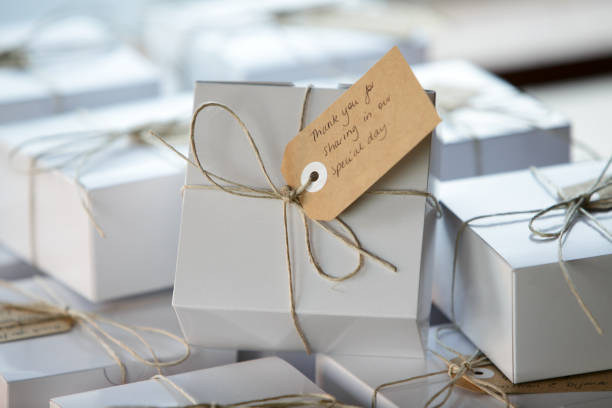 Thank you for
sharing in our
special day